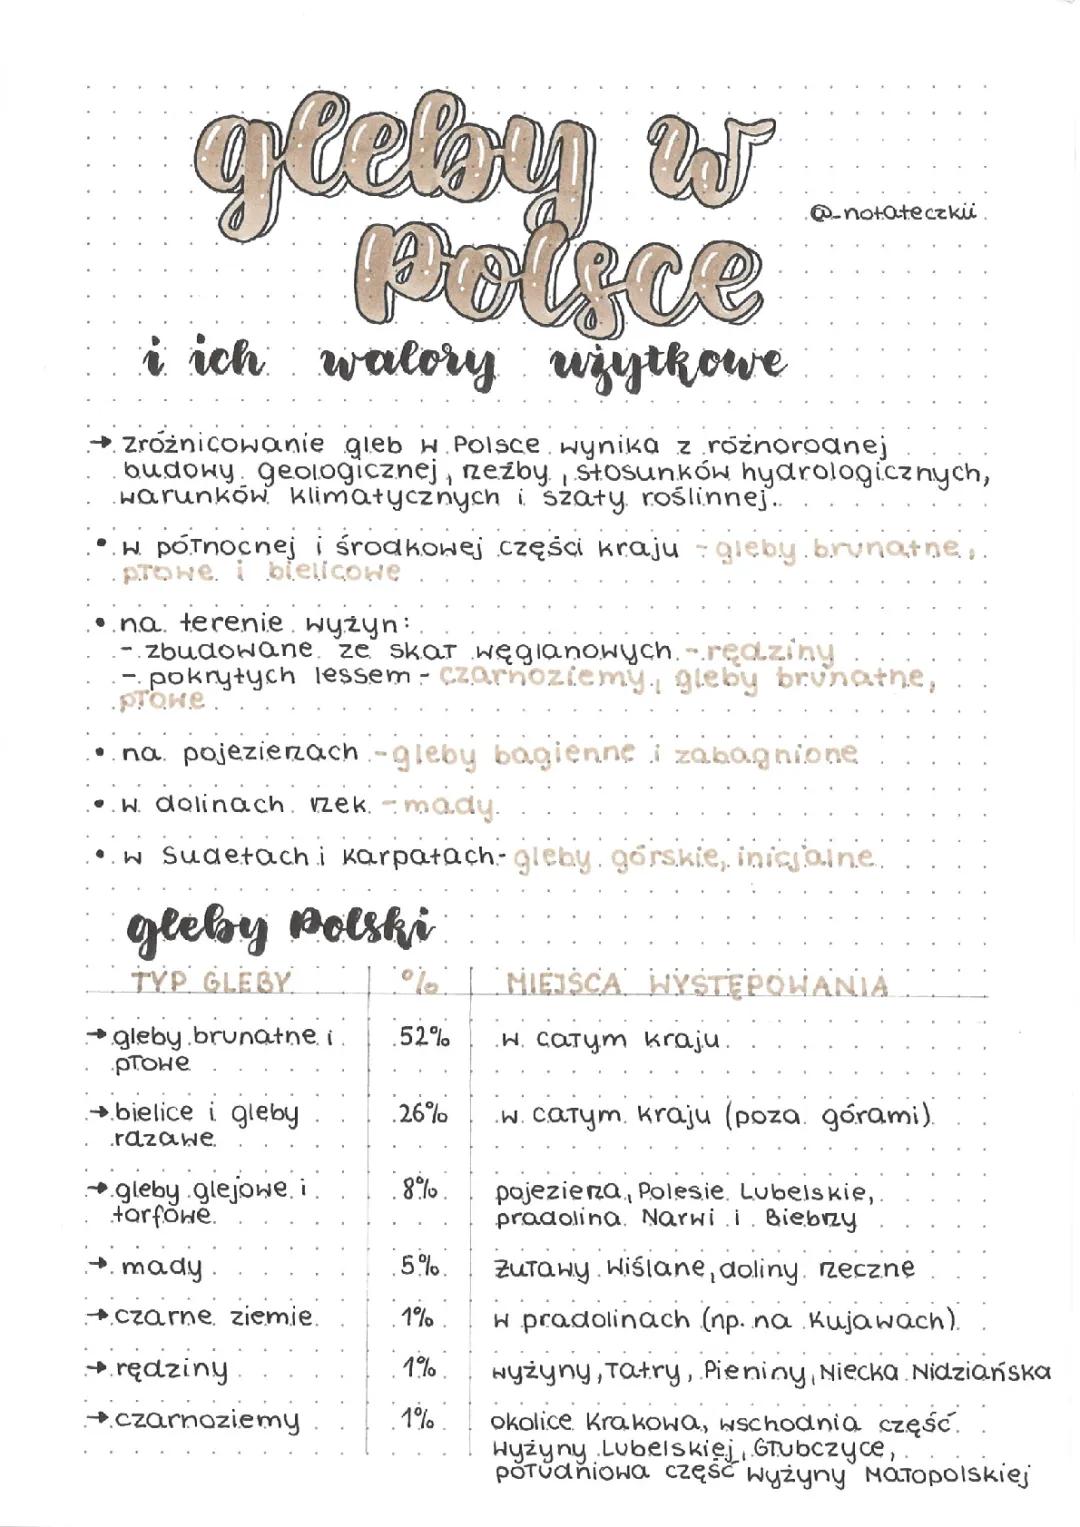 gleby w
@_notateczkii
Polsce
i ich walory użytkowe
→ Zróżnicowanie gleb w Polsce wynika z różnorodnej
budowy geologicznej, rzeźby, stosunków hydrologicznych,
warunków klimatycznych i szaty roślinnej.
• w północnej i środkowej części kraju - gleby brunatne,
płowe i bielicowe
• na terenie wyżyn:
- zbudowane ze skał węglanowych - rędziny
- pokrytych lessem - czarnoziemy, gleby brunatne,
płowe
• na pojezierzach - gleby bagienne i zabagnione
• w dolinach rzek - mady
• w Sudetach i Karpatach - gleby górskie, inicjalne
gleby Polski
TYP GLEBY % MIEJSCA WYSTĘPOWANIA
→ gleby brunatne i 52% w całym kraju
płowe
→ bielice i gleby 26% w całym kraju (poza górami)
rdzawe
→ gleby glejowe i 8% pojezierza, Polesie Lubelskie,
torfowe pradolina Narwi i Biebrzy
→ mady 5% Żuławy Wiślane, doliny rzeczne
→ czarne ziemie 1% w pradolinach (np. na Kujawach)
→ rędziny 1% wyżyny, Tatry, Pieniny, Niecka Nidziańska
→ czarnoziemy 1% okolice Krakowa, wschodnia część
Wyżyny Lubelskiej, Głubczyce,
południowa część Wyżyny Małopolskiej